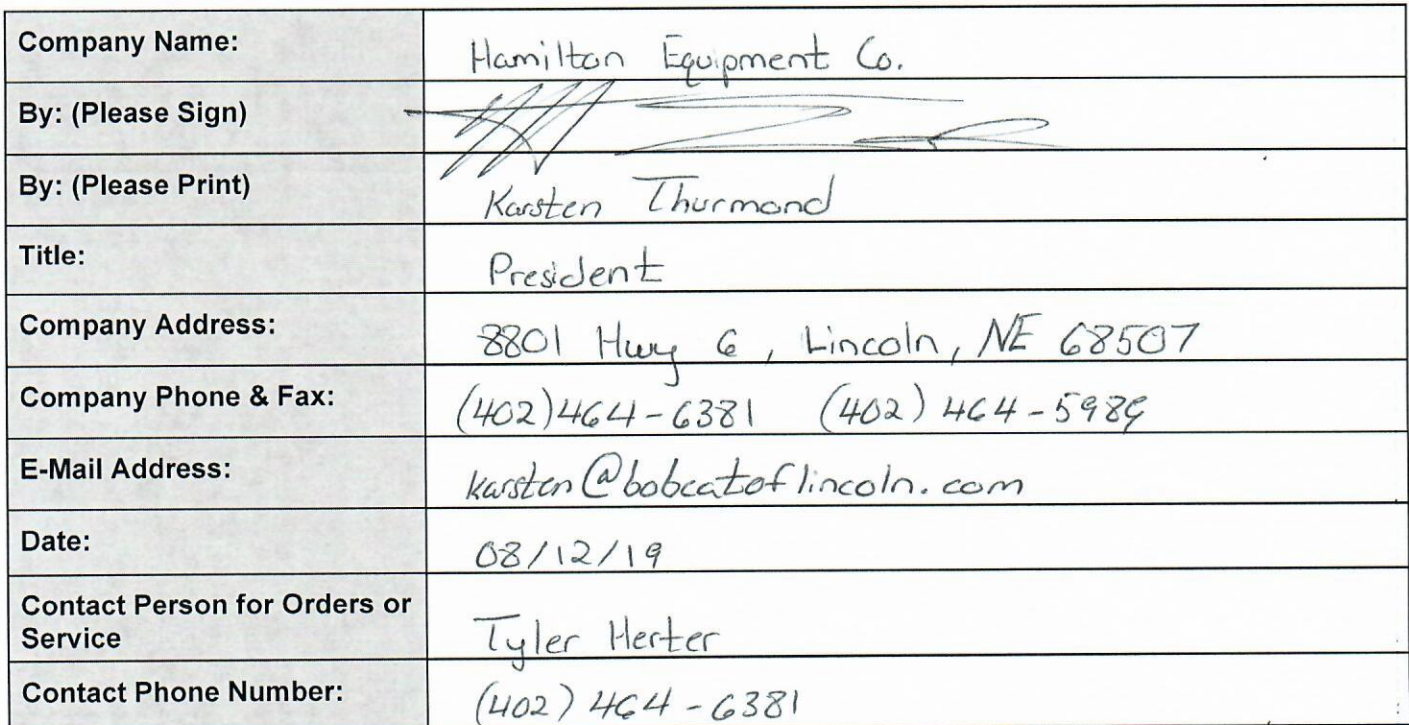 Company Name: Hamilton Equipment Co.
By: (Please Sign)
By: (Please Print) Karsten Thurmond
Title: President
Company Address: 8801 Hwy 6, Lincoln, NE 68507
Company Phone & Fax: (402)464-6381 (402) 464-5989
E-Mail Address: karsten@bobcatoflincoln.com
Date: 08/12/19
Contact Person for Orders or
Service Tyler Herter
Contact Phone Number: (402) 464-6381